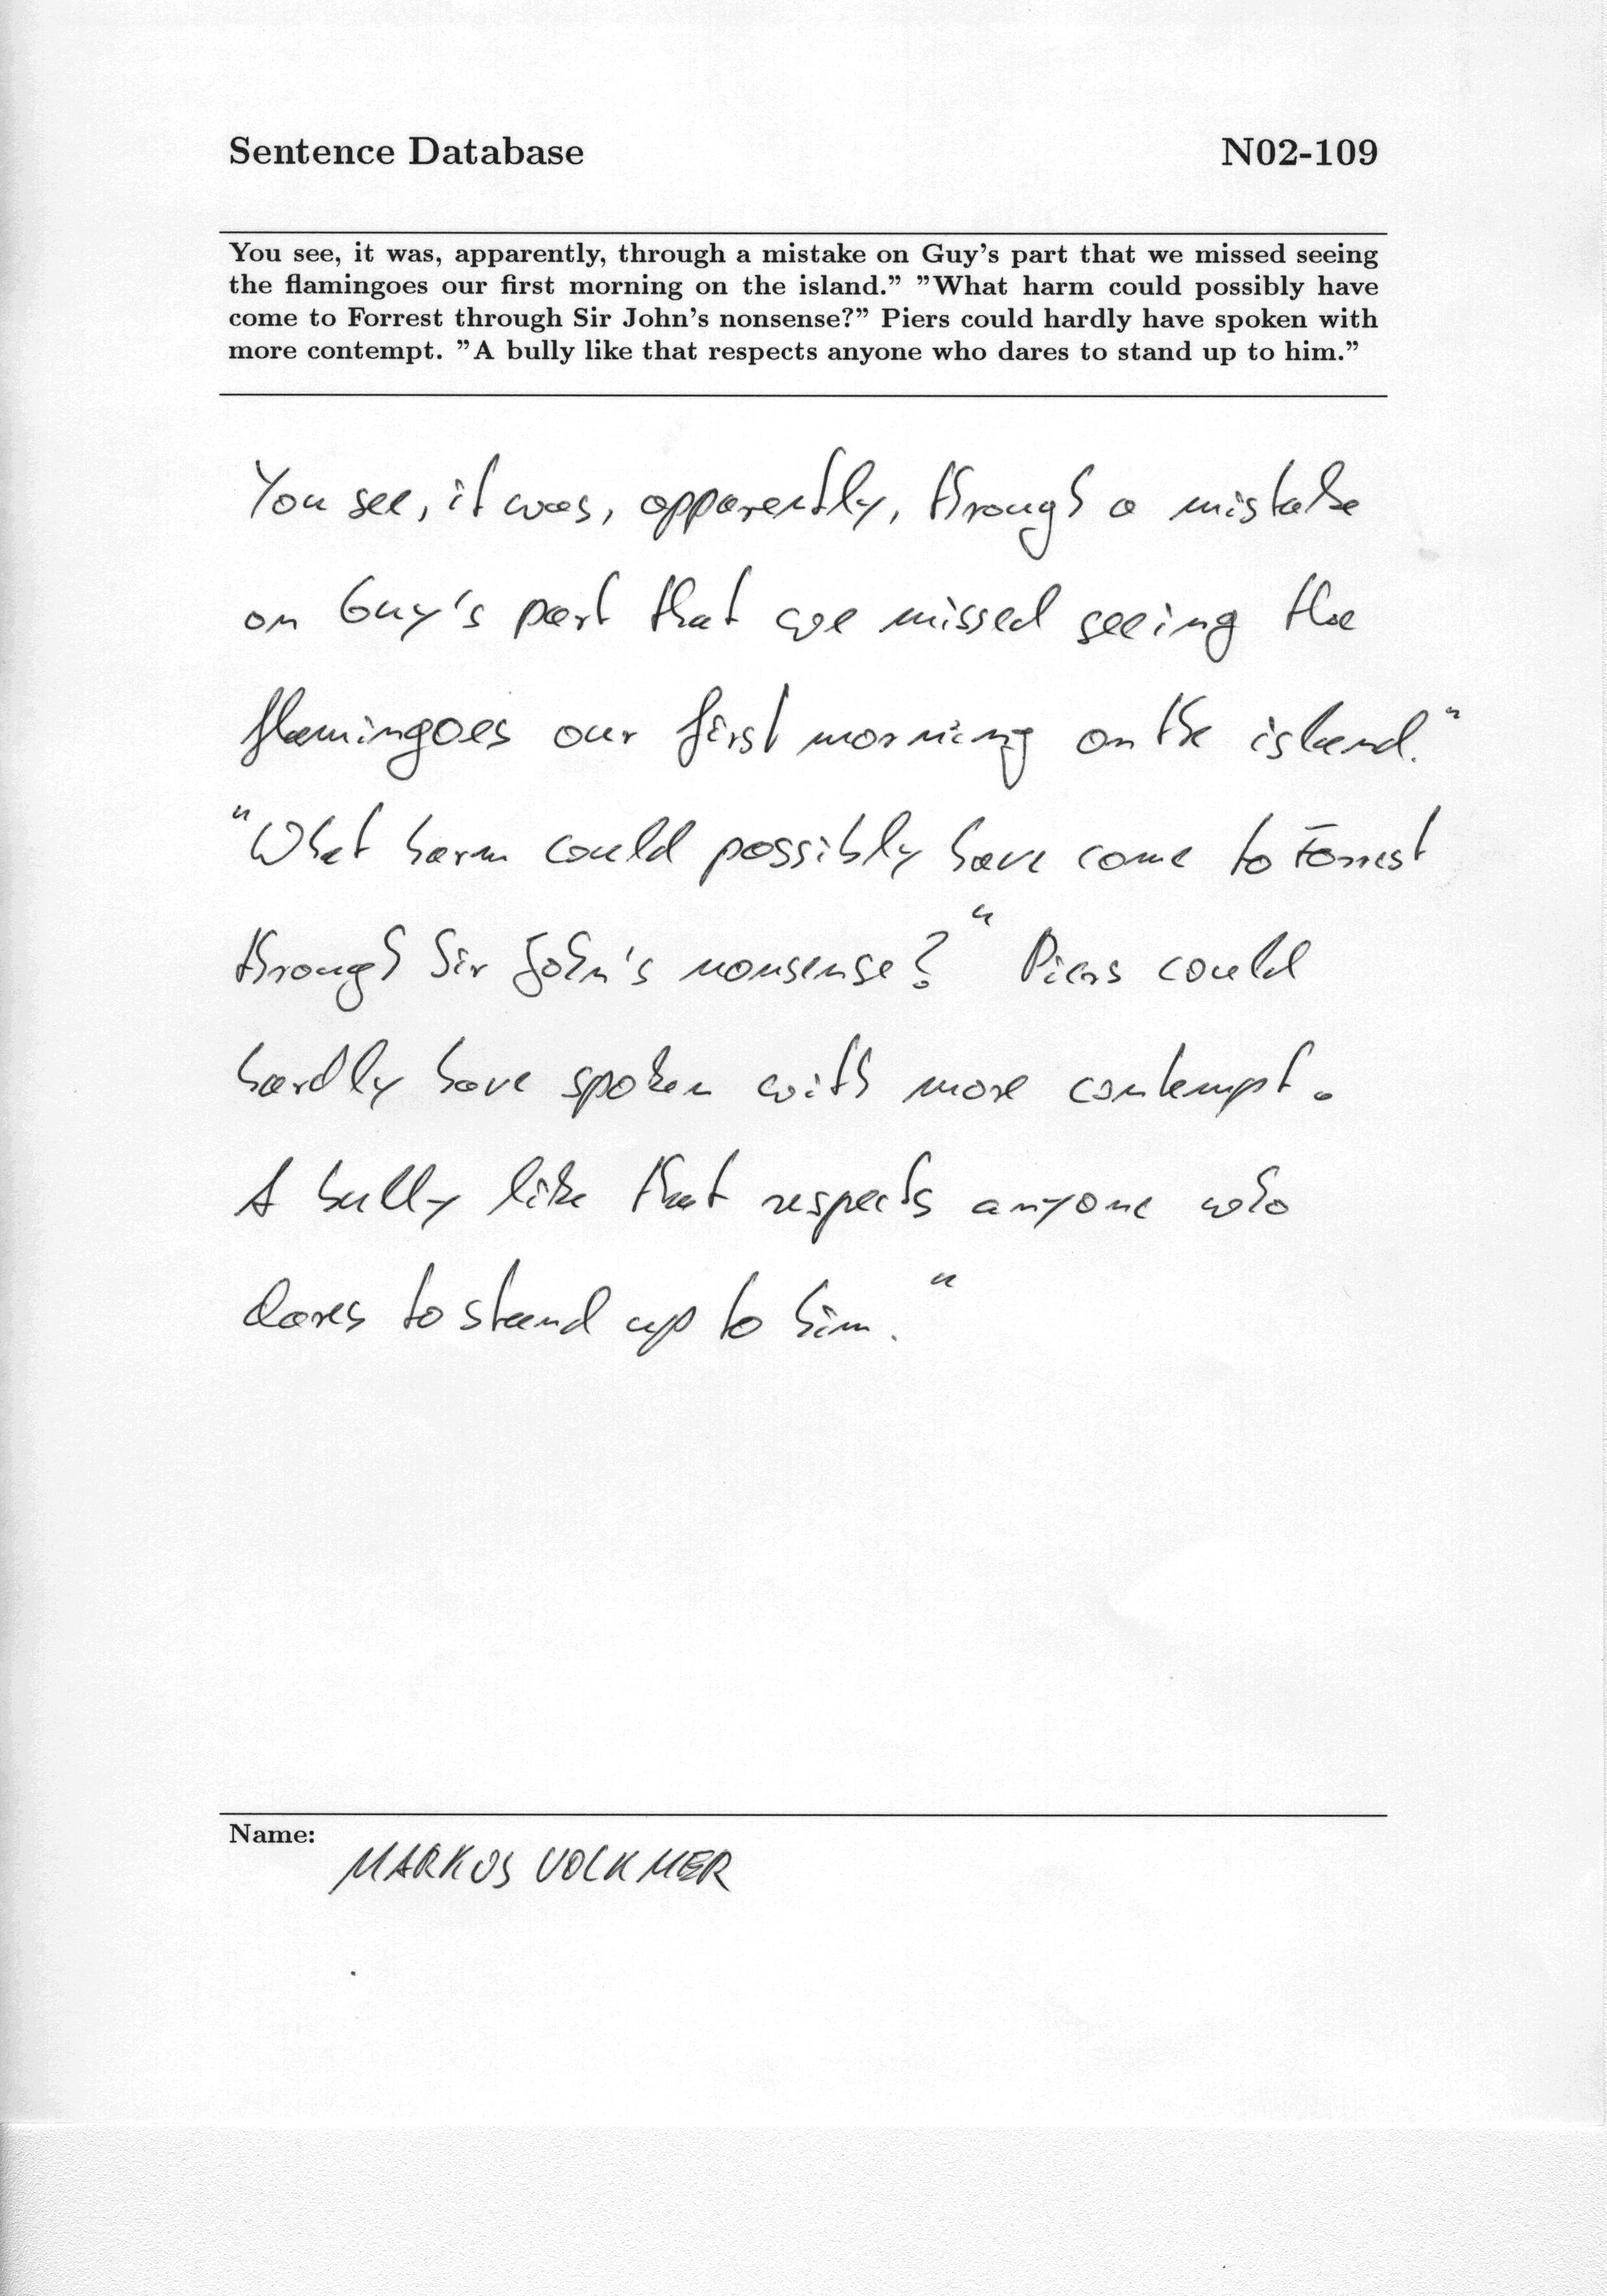 Sentence Database N02-109
You see, it was, apparently, through a mistake on Guy's part that we missed seeing
the flamingoes our first morning on the island.” ”What harm could possibly have
come to Forrest through Sir John's nonsense?” Piers could hardly have spoken with
more contempt. ”A bully like that respects anyone who dares to stand up to him.”
You see, it was, apparently, through a mistake
on Guy's part that we missed seeing the
flamingoes our first morning on the island."
"What harm could possibly have come to Forrest
through Sir John's nonsense?" Piers could
hardly have spoken with more contempt.
A bully like that respects anyone who
dares to stand up to him."
Name:
MARKUS VOLKMER